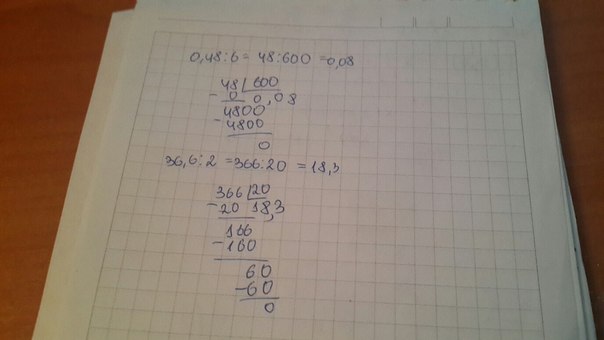 0,48:6= 48:600 =0,08
48 600
- 0 0,08
4800
- 4800
0
36,6:2 =366:20 =18,3
366 20
- 20 18,3
166
- 160
60
- 60
0